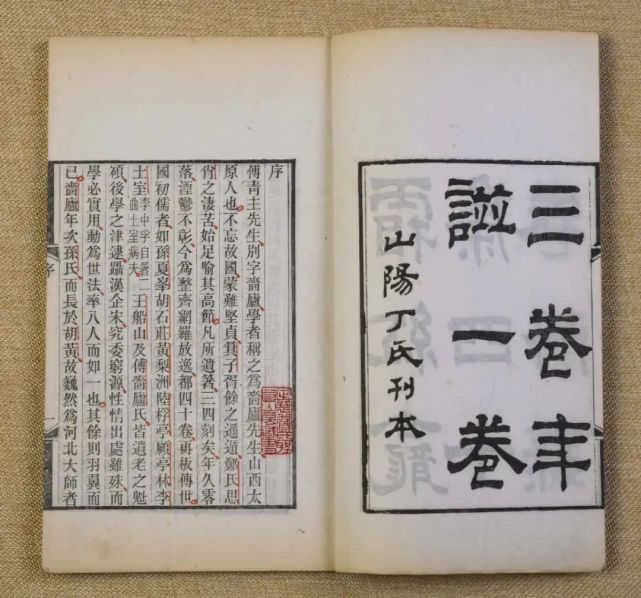 三卷年
譜一卷
山陽丁氏刊本
序
傅青主先生別字嗇廬學者稱之爲嗇廬先生山西太
原人也不忘故國蒙難堅貞其子胥餘之遜遁鄭氏思
肖之淒苦始足喻其高節凡所遺箸三四刻矣年久零
落湮鬱不彰今爲整齊網羅放逸都四十卷再板傳世
國初儒者如孫夏峯胡石莊黃梨洲陸桴亭顧亭林李
士室李中孚自署二曲士室病夫王船山及傅嗇廬氏皆遺老之魁
碩後學之津逮躡漢企宋究委窮源性情出處雖殊而
學必實用動爲世法率八人而如一也其餘則羽翼而
已嗇廬年次孫氏而長於胡黃故巍然爲河北大師者
序
一